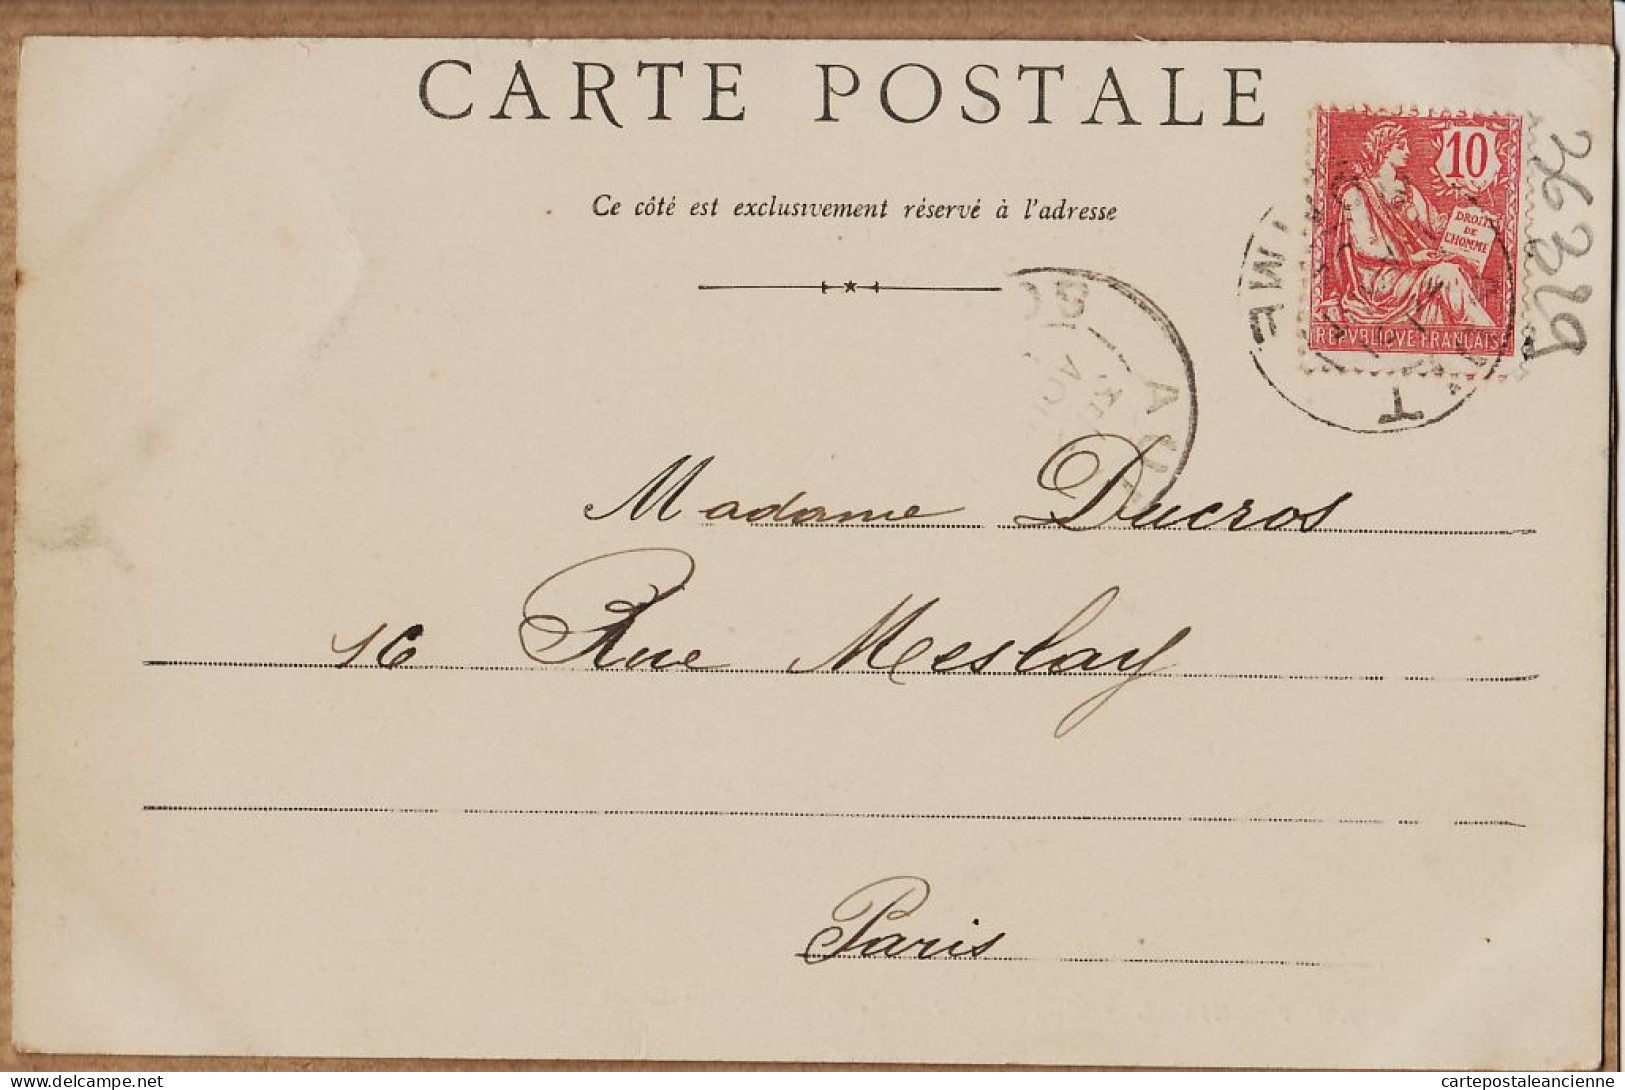 CARTE POSTALE
10
Ce côté est exclusivement réservé à l'adresse
DROITS
DE
L'HOMME
REPVBLIQVE FRANÇAISE
Madame Ducros
16 Rue Meslay
Paris
delcampe.net
cartepostaleancienne